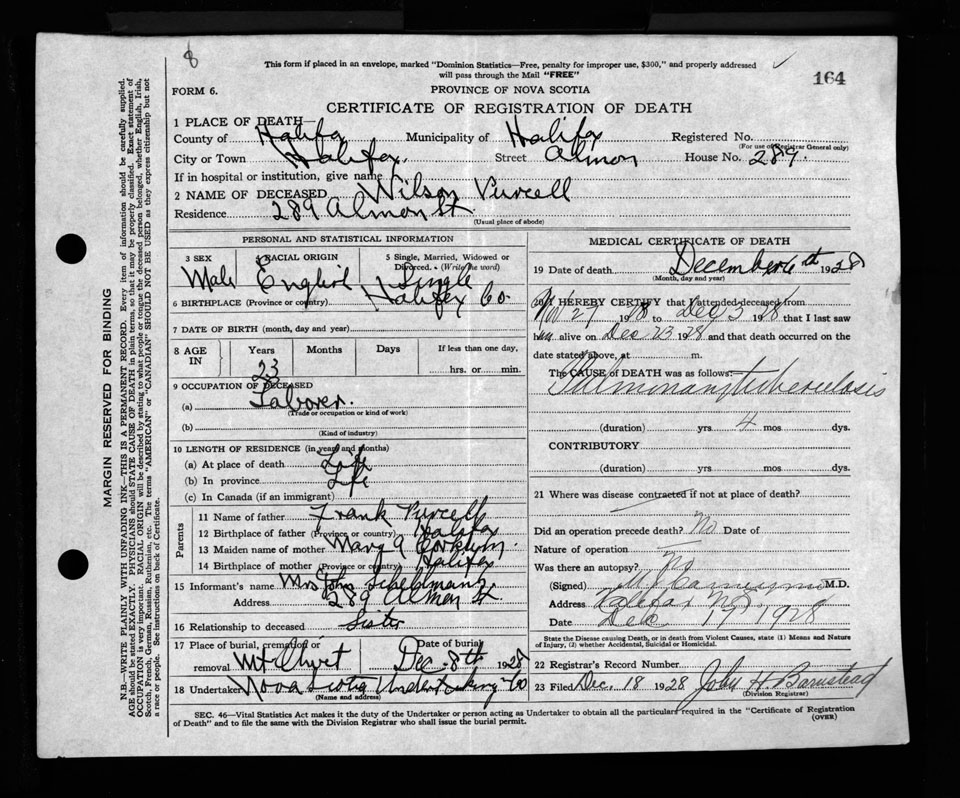 8
This form if placed in an envelope, marked "Dominion Statistics—Free, penalty for improper use, $300," and properly addressed
will pass through the Mail "FREE"
✓
164
FORM 6.
PROVINCE OF NOVA SCOTIA
CERTIFICATE OF REGISTRATION OF DEATH
1 PLACE OF DEATH—
County of Halifax Municipality of Halifax Registered No.
(For use of Registrar General only)
City or Town Halifax. Street Almon House No. 289.
If in hospital or institution, give name
2 NAME OF DECEASED Wilson Purcell
Residence 289 Almon St
(Usual place of abode)
PERSONAL AND STATISTICAL INFORMATION
3 SEX
Male
4 RACIAL ORIGIN
English
5 Single, Married, Widowed or
Divorced. (Write the word)
Single
6 BIRTHPLACE (Province or country) Halifax Co.
7 DATE OF BIRTH (month, day and year)
8 AGE IN
Years Months Days If less than one day,
23
hrs. or min.
9 OCCUPATION OF DECEASED
(a) Laborer.
(Trade or occupation or kind of work)
(b)
(Kind of industry)
10 LENGTH OF RESIDENCE (in years and months)
(a) At place of death Life
(b) In province Life
(c) In Canada (if an immigrant)
Parents
11 Name of father Frank Purcell
12 Birthplace of father (Province or country) Halifax
13 Maiden name of mother Mary A Corkum.
14 Birthplace of mother (Province or country) Halifax
15 Informant's name Mrs John
Address 289 Almon St
16 Relationship to deceased Sister
17 Place of burial, cremation or
removal Mt Olivet
Date of burial
Dec. 8th 1928
18 Undertaker Nova Scotia Undertaking Co
(Name and address)
MEDICAL CERTIFICATE OF DEATH
19 Date of death December 6th 1928
(Month, day and year)
20 I HEREBY CERTIFY that I attended deceased from
Nov 27 1928 to Dec 3 1928 that I last saw
him alive on Dec 3 1928 and that death occurred on the
date stated above, at m.
The CAUSE of DEATH was as follows:
Pulmonary tuberculosis
(duration) yrs 4 mos dys.
CONTRIBUTORY
(duration) yrs. mos. dys.
21 Where was disease contracted if not at place of death?
Did an operation precede death? No Date of
Nature of operation
Was there an autopsy? No
(Signed) M.D.
Address Halifax N.S.
Date Dec. 17 1928
State the Disease causing Death, or in death from Violent Causes, state (1) Means and Nature
of Injury, (2) whether Accidental, Suicidal or Homicidal.
22 Registrar's Record Number
23 Filed Dec. 18 1928 John H. Barnstead
(Division Registrar)
SEC. 46—Vital Statistics Act makes it the duty of the Undertaker or person acting as Undertaker to obtain all the particulars required in the "Certificate of Registration
of Death" and to file the same with the Division Registrar who shall issue the burial permit.
(OVER)
MARGIN RESERVED FOR BINDING
N.B.—WRITE PLAINLY WITH UNFADING INK—THIS IS A PERMANENT RECORD. Every item of information should be carefully supplied.
AGE should be stated EXACTLY. PHYSICIANS should STATE CAUSE OF DEATH in plain terms, so that it may be properly classified. Exact statement of
OCCUPATION is very important. RACIAL ORIGIN will be described by stating to what people or tongue the deceased person belonged, whether English, Irish,
Scotch, French, German, Russian, Ruthenian, etc. The terms "AMERICAN" or "CANADIAN" SHOULD NOT BE USED as they express citizenship but not
a race or people. See instructions on back of Certificate.